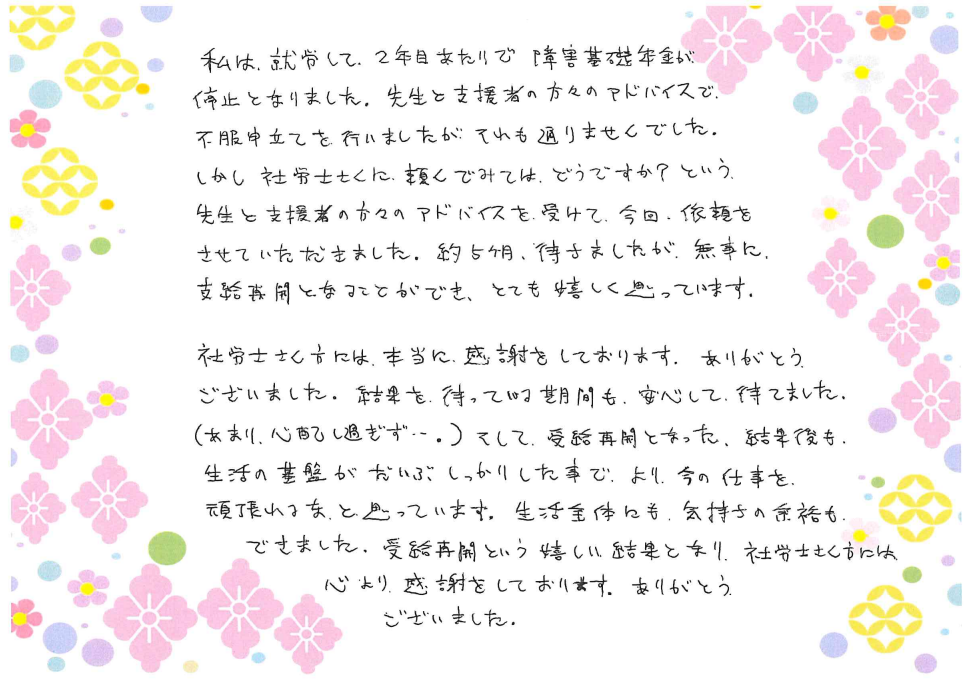 私は、就労して、2年目あたりで 障害基礎年金が
停止となりました。先生と支援者の方々のアドバイスで、
不服申立てを行いましたが それも通りませんでした。
しかし 社労士さんに、頼んでみては、どうですか？という
先生と支援者の方々のアドバイスを、受けて、今回、依頼を
させていただきました。約5ヶ月、待ちましたが、無事に、
支給再開となることができ、とても嬉しく思っています。
社労士さん方には、本当に、感謝をしております。ありがとう
ございました。結果を、待っている期間も、安心して、待てました。
(あまり、心配し過ぎず…。)そして、受給再開となった、結果後も、
生活の基盤が だいぶ しっかりした事で、より、今の仕事を、
頑張れるな、と思っています。生活全体にも、気持ちの余裕も、
できました。受給再開という嬉しい結果となり、社労士さん方には
心より、感謝をしております。ありがとう
ございました。